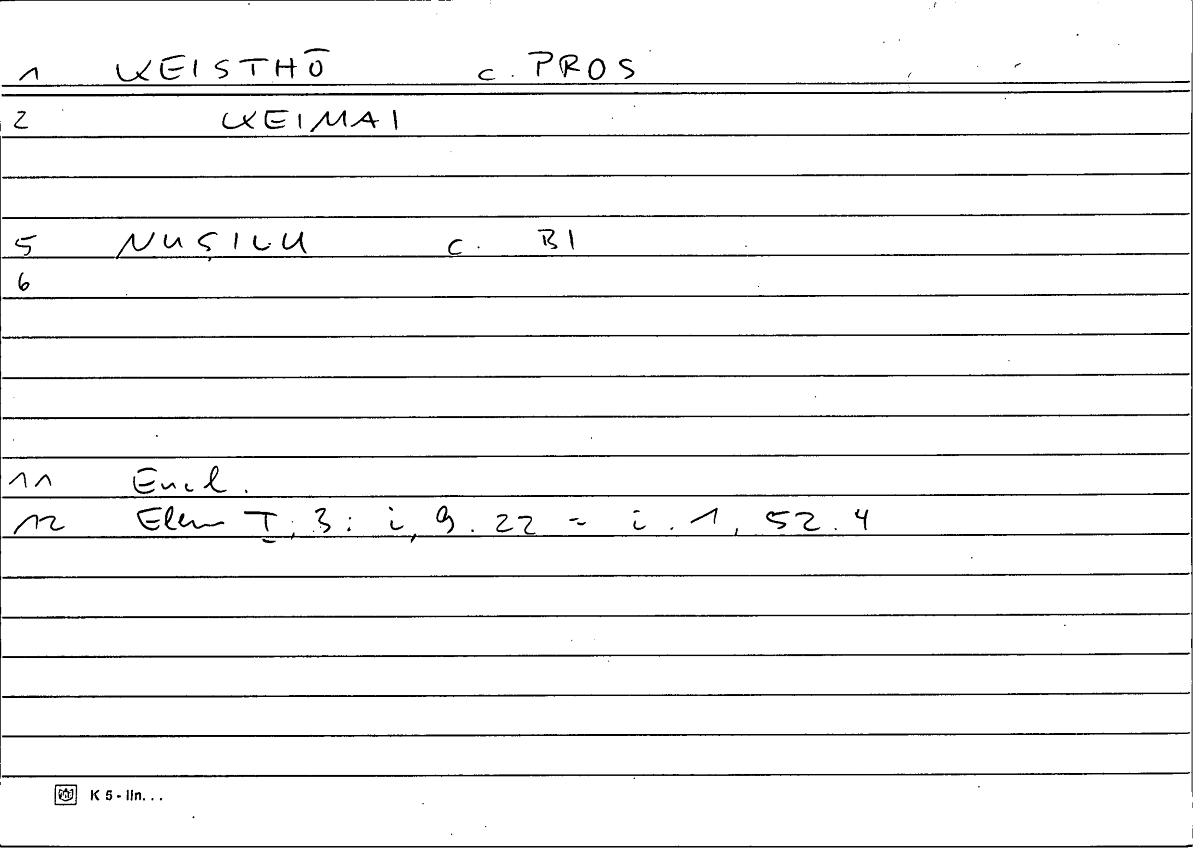 1 KEISTHŌ c. PROS
2 KEIMAI
5 NUṢILU c. BI
6
11 Eucl.
12 Elem I, 3 : i, 9.22 = i.1, 52.4
K 5 - lin. . .